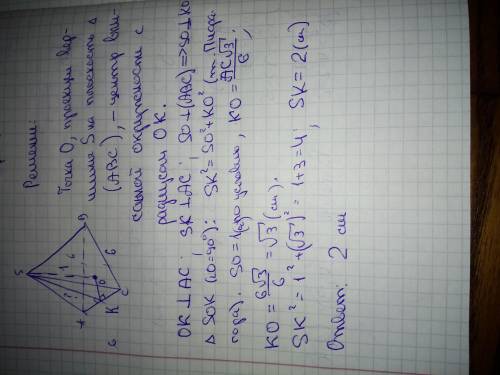 Решение:
Точка O, проекция вер-
шины S на плоскость Δ
(ABC), – центр впи-
санной окружности с
радиусом OK.
OK ⊥ AC; SK ⊥ AC; SO ⊥ (ABC) => SO ⊥ KO
Δ SOK (∠O=90°): SK² = SO² + KO² (т. Пифа-
гора). SO = 1 (по условию), KO = AC√3/6;
KO = 6√3/6 = √3 (см).
SK² = 1² + (√3)² = 1+3 = 4; SK = 2 (см)
Ответ: 2 см
S
A
B
C
K
O
1
6
6
6